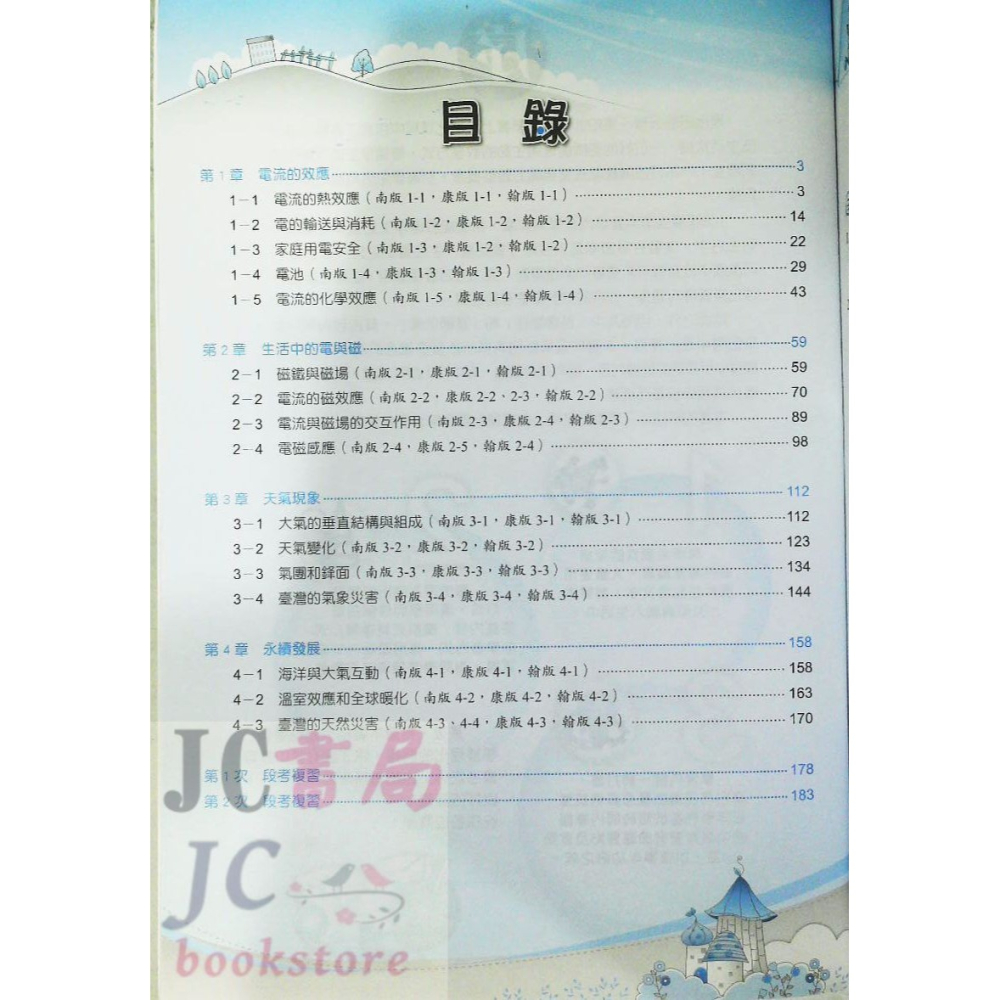 目錄
第1章 電流的效應 3
1-1 電流的熱效應（南版 1-1，康版 1-1，翰版 1-1） 3
1-2 電的輸送與消耗（南版 1-2，康版 1-2，翰版 1-2） 14
1-3 家庭用電安全（南版 1-3，康版 1-2，翰版 1-2） 22
1-4 電池（南版 1-4，康版 1-3，翰版 1-3） 29
1-5 電流的化學效應（南版 1-5，康版 1-4，翰版 1-4） 43
第2章 生活中的電與磁 59
2-1 磁鐵與磁場（南版 2-1，康版 2-1，翰版 2-1） 59
2-2 電流的磁效應（南版 2-2，康版 2-2、2-3，翰版 2-2） 70
2-3 電流與磁場的交互作用（南版 2-3，康版 2-4，翰版 2-3） 89
2-4 電磁感應（南版 2-4，康版 2-5，翰版 2-4） 98
第3章 天氣現象 112
3-1 大氣的垂直結構與組成（南版 3-1，康版 3-1，翰版 3-1） 112
3-2 天氣變化（南版 3-2，康版 3-2，翰版 3-2） 123
3-3 氣團和鋒面（南版 3-3，康版 3-3，翰版 3-3） 134
3-4 臺灣的氣象災害（南版 3-4，康版 3-4，翰版 3-4） 144
第4章 永續發展 158
4-1 海洋與大氣互動（南版 4-1，康版 4-1，翰版 4-1） 158
4-2 溫室效應和全球暖化（南版 4-2，康版 4-2，翰版 4-2） 163
4-3 臺灣的天然災害（南版 4-3、4-4，康版 4-3，翰版 4-3） 170
第1次 段考複習 178
第2次 段考複習 183
JC書局
JC
bookstore